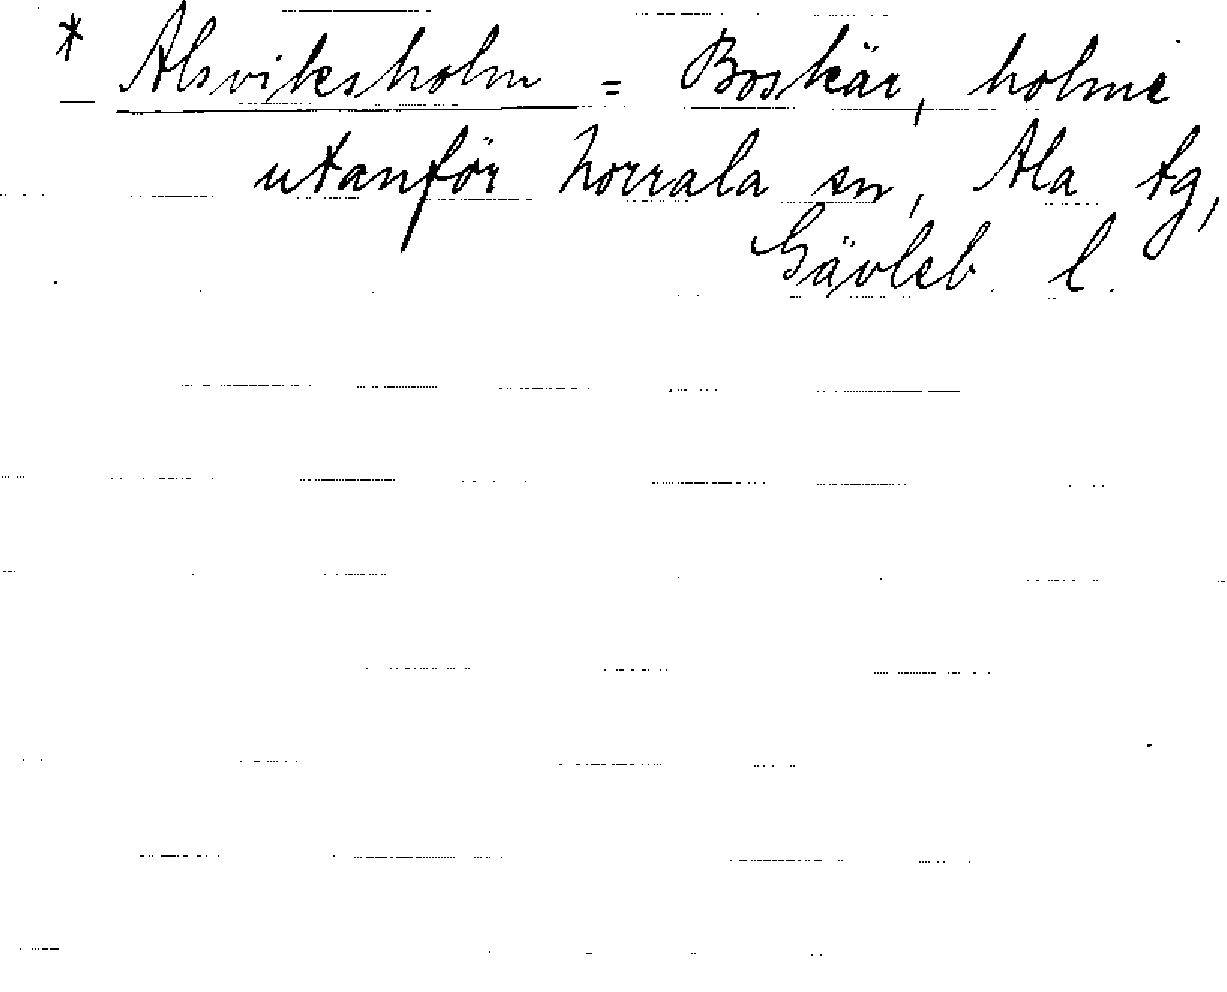 * Alsviksholm = Boskär, holme
utanför Norrala sn, Ala tg,
Gävleb. l.